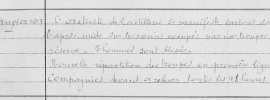 L'activité de l'artillerie se manifeste surtout dans
l'après midi sur les zones occupées par nos troupes
réserve. 3 hommes sont blessés.
Nouvelle répartition des troupes en première ligne
Compagnies devant se relever toutes les 24 heures